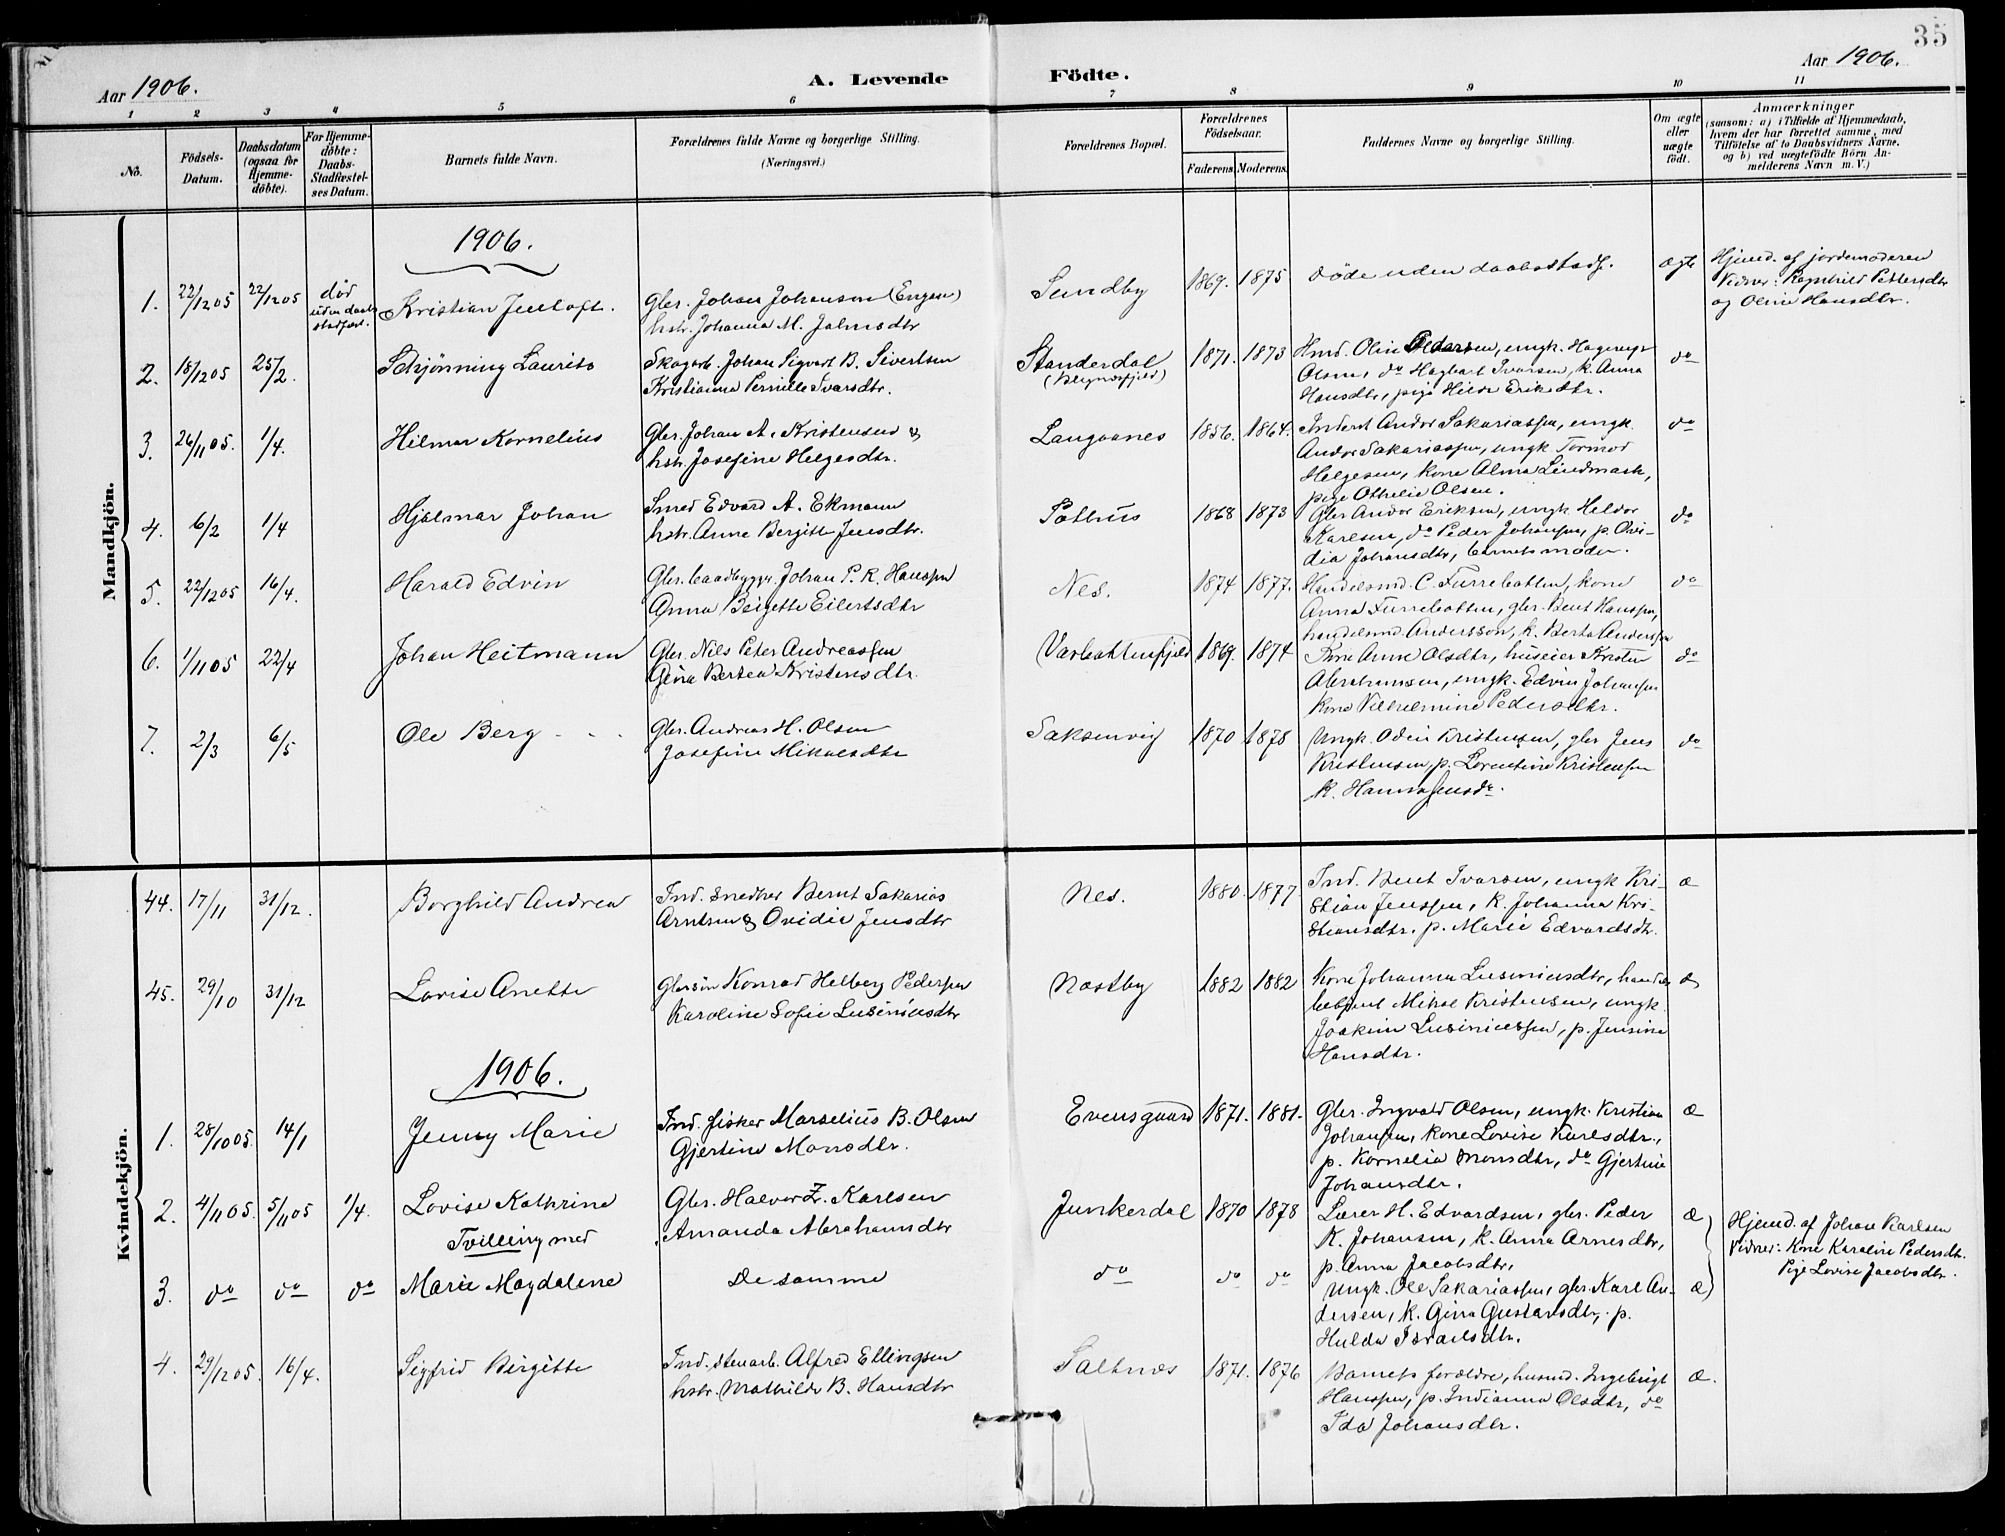 35
Aar 1906.
A. Levende Födte.
Aar 1906.
1 2 3 4 5 6 7 8 9 10 11
No.
Födsels-
Datum.
Daabsdatum
(ogsaa for
Hjemme-
döbte).
For Hjemme-
döbte:
Daabs-
Stadfæstel-
ses Datum.
Barnets fulde Navn.
Forældrenes fulde Navne og borgerlige Stilling.
(Næringsvei.)
Forældrenes Bopæl.
Forældrenes
Födselsaar.
Faderens. Moderens.
Faddernes Navne og borgerlige Stilling.
Om ægte
eller
uægte
födt.
Anmærkninger
(saasom: a) i Tilfælde af Hjemmedaab,
hvem der har forrettet samme, med
Tilföielse af to Daabsvidners Navne.
og b) ved uegtefödte Börn An-
melderens Navn m. V.)
Mandkjön.
1906.
1. 22/12 05 22/12 05 død
uden daabs
stadfæst.
Kristian Jentoft.
Gbr. Johan Johansen (Engen)
hstr. Johanna M. Jakobsdtr
Sundby 1869. 1875 døde uden daabsstadf. ægte
Hjemd. af jordemoderen
Vidner: Ragnhild Pettersdtr
og Oline Hansdtr.
2. 18/12 05 25/2.
Schjønning Laurits
Skogarb. Johan Sigvart B. Sivertsen
Kristianna Pernille Ivarsdtr.
Standerdal 1871. 1873
Hmd. Olin Pedersen, ungk.
Olsen, do Hagbart Ivarsen, k. Anna
Hansdtr, pige Hilda Eriksdtr.
do
3. 26/11 05. 1/4.
Hilmar Kornelius
Gbr. Johan A. Kristensen &
hstr. Josefine Helgesdtr.
Langaanes 1856. 1864.
Inderst Andor Sakariassen, ungk.
Andor Sakariassen, ungk. Tormod
Helgesen, kone Alma Lindmark,
pige Othelie Olsen.
do
4. 6/2 1/4
Hjalmar Johan
Smed Edvard A. Ekmann
hstr. Anne Bergitte Jensdtr.
Pothus 1868 1873
Gbr Andor Eriksen, ungk Heldor
Karlsen, do Peder Johansen, p. Ovi-
dia Johansdtr, barnets moder.
do
5. 22/12 05 16/4.
Harald Edvin
Gbr. baadbygger. Johan P. K. Hanssen
Anna Beigette Eilertsdtr
Nes. 1874 1877.
Handelsmd. C. Furrebotten, kone
Anna Furrebotten, gbr. Bent Hanssen,
handelsmd. Andersson, k. Berta Anderssen
do
6. 1/11 05 22/4
Johan Heitmann
Gbr. Nils Peter Andreassen
Gina Bertea Kristensdtr.
1869. 1874
Kone Anne Olsdtr, huseier Kristen
Abrahamsen, ungk. Edvin Johansen
Kone Vilhelmine Pedersdtr.
do
7. 2/3 6/5
Ole Berg
Gbr. Andreas H. Olsen
Josefine Mikalsdtr
Saksenvig 1870 1878
Ungk. Odin Kristensen, gbr Jens
Kristensen, p. Lorentine Kristensen
k. Hanna Jensdr.
do
Kvindekjön.
44. 17/11 31/12.
Borghild Andrea
Ind. snedker Bernt Sakarias
Arntsen & Ovidie Jensdtr
Nes. 1880. 1877
Ind. Bent Ivarsen, ungk Kri-
stian Jenssen, k. Johanna Kri-
stiansdtr. p. Marie Edvardsdtr.
æ
45. 29/10 31/12
Lovise Anette
Gbrsøn Konrad Helberg Pedersen
Karoline Sofie Lusiniusdtr
Næstby 1882 1882
Kone Johanna Lusiniusdtr, handels
betjent Mikal Kristensen, ungk.
Joakim Lusiniussen, p. Jensine
Hansdtr.
æ
1906.
1. 28/10 05. 14/1
Jenny Marie
Ind. fisker Marselius B. Olsen
Gjertine Monsdtr.
Evensgaard 1871. 1881.
Gbr. Ingvald Olsen, ungk. Kristian
Johansen, kone Lovise Karlsdtr,
p. Kornelia Monsdtr, do Gjertine
Johansdtr.
æ
2. 4/11 05. 5/11 05 1/4.
Lovise Kathrine
Tvilling med
Gbr. Halvor Z. Karlsen
Amanda Abrahamsdtr
Junkerdal 1870 1878
Lærer H. Edvardsen, gbr. Peder
K. Johansen, k. Anna Arnesdtr,
p. Anna Jacobsdtr,
æ
Hjemd. af Johan Karlsen
Vidner: Kone Karoline Pedersdtr.
Pige Lovise Jacobsdtr.
3. do do do
Marie Magdalene
De samme
do do do
Ungk. Ole Sakariassen, gbr. Karl An-
dersen, k. Gina Gustavsdtr, p.
Hulda Israelsdtr.
æ
4. 29/12 05. 16/4.
Sigfrid Birgitte
Ind. stenarb. Alfred Ellingsen
hstr. Mathilde B. Hansdtr
Saltnes 1871. 1876
Barnets forældre, husmd. Ingebrigt
Hanssen, p. Indianna Olsdtr, do
Ida Johansdtr.
æ.